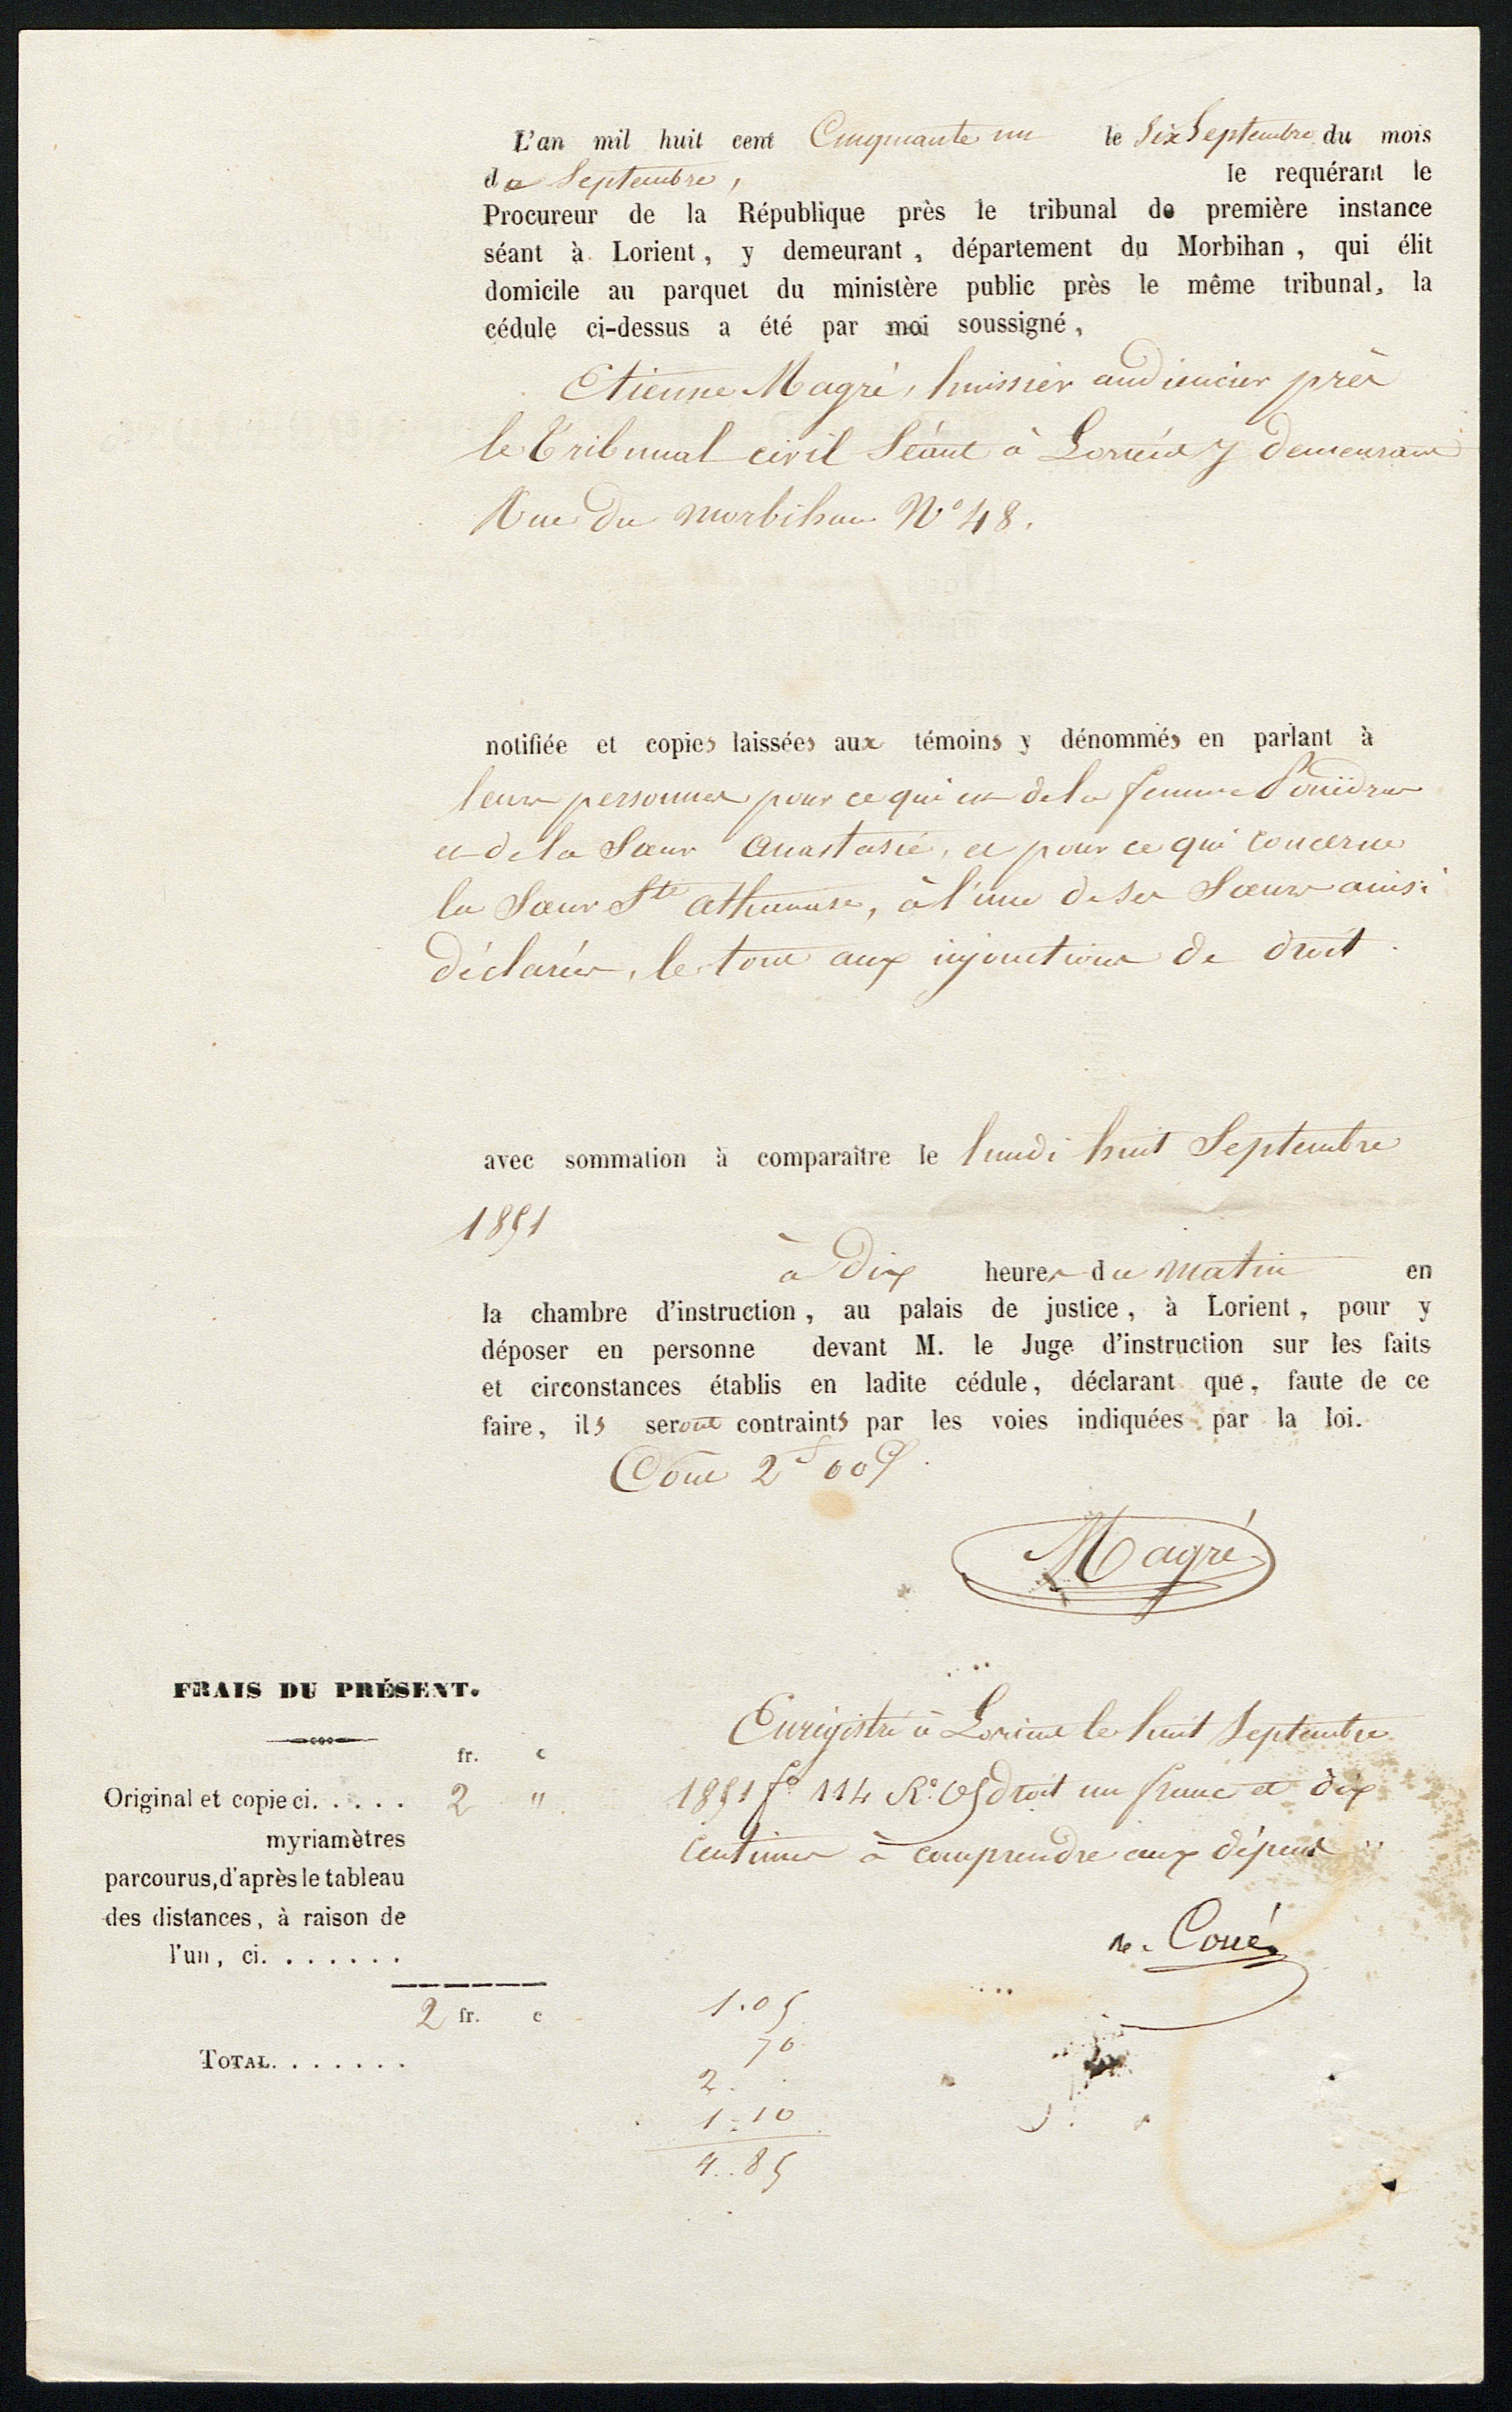 L'an mil huit cent Cinquante un le Six Septembre du mois
de Septembre, le requérant le
Procureur de la République près le tribunal de première instance
séant à Lorient, y demeurant, département du Morbihan, qui élit
domicile au parquet du ministère public près le même tribunal, la
cédule ci-dessus a été par moi soussigné,
Etienne Magré, huissier audiencier près
le Tribunal civil Séant à Lorient y demeurant
Rue du Morbihan N° 48.
notifiée et copies laissées aux témoins y dénommés en parlant à
leurs personnes pour ce qui est de la femme
et de la Sœur Anastasie, et pour ce qui concerne
la Sœur Ste Athanase, à l'une de ses Sœurs ainsi
déclarée, le tout aux injonctions de droit.
avec sommation à comparaître le lundi huit Septembre
1851
à Dix heures du matin en
la chambre d'instruction, au palais de justice, à Lorient, pour y
déposer en personne devant M. le Juge d'instruction sur les faits
et circonstances établis en ladite cédule, déclarant que, faute de ce
faire, ils seront contraints par les voies indiquées par la loi.
Coût 2f 00c.
Magré
FRAIS DU PRÉSENT.
fr. c
Original et copie ci. . . . . 2 "
myriamètres
parcourus, d'après le tableau
des distances, à raison de
l'un, ci. . . . . . .
2 fr. c
TOTAL. . . . . . .
Enregistré à Lorient le huit Septembre
1851 fo 114 Ro. C5 droit un franc et dix
centimes à comprendre aux dépens
Coué
1.05
70
2.
1.10
4.85